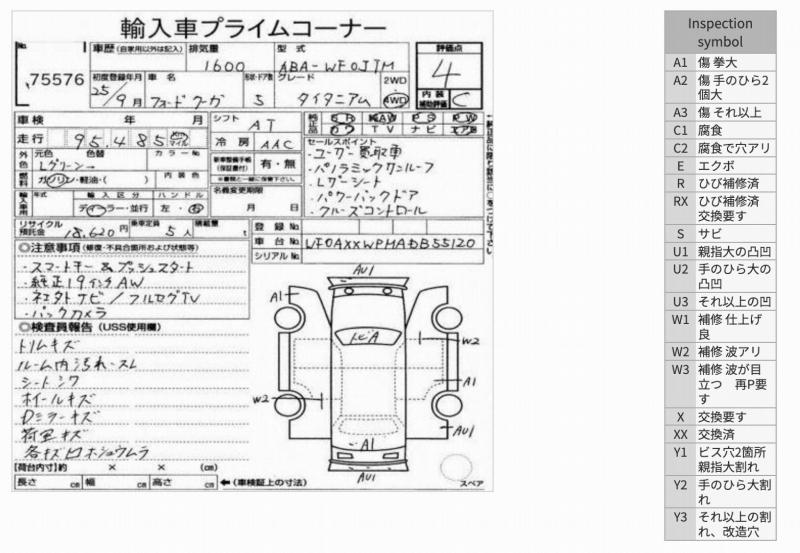 輸入車プライムコーナー
No.
75576
車歴 (自家用以外は記入)
排気量
1600
型式
ABA-WF0JTM
評価点
4
初度登録年月
25/9月
車名
フォードクーガ
形状・ドア数
5
グレード
タイタニアム
2WD
4WD
内装
補助評価
C
車検 年 月
シフト
AT
純正品
SR
AW
PS
PW
カワ
TV
ナビ
エアB
走行
95,485
km
マイル
冷房
AAC
セールスポイント
・ユーザー買取車
・パノラミックサンルーフ
・Lザーシート
・パワーバックドア
・クルーズコントロール
外色
元色
色替
カラーNo
Lグリーン→
新車整備手帳
(保証書付)
有・無
燃料
ガソリン・軽油・( )
内装色
名義変更期限
月 日
輸入車用
年式
輸入区分
ハンドル
ディーラー・並行
左・右
リサイクル
預託金
18,620円
乗車定員
5人
積載量
t
登録No.
車台No.
WF0AXXWPMADB55120
シリアルNo.
◎注意事項(修復・不具合箇所および状態等)
・スマートキー&プッシュスタート
・純正19インチAW
・ネクストナビ/フルセグTV
・バックカメラ
◎検査員報告(USS使用欄)
トリムキズ
ルーム内汚れ・スレ
シートシワ
ホイールキズ
Dミラーキズ
荷室キズ
各キズ凹ホシュウムラ
AU1
A1
トビA
W2
A1
W2
AU1
A1
AU1
スペア
【荷台内寸】約 × × (cm)
長さ cm 幅 cm 高さ cm ←(車検証上の寸法)
Inspection
symbol
A1 傷 拳大
A2 傷 手のひら2
個大
A3 傷 それ以上
C1 腐食
C2 腐食で穴アリ
E エクボ
R ひび補修済
RX ひび補修済
交換要す
S サビ
U1 親指大の凸凹
U2 手のひら大の
凸凹
U3 それ以上の凹
W1 補修 仕上げ
良
W2 補修 波アリ
W3 補修 波が目
立つ 再P要
す
X 交換要す
XX 交換済
Y1 ビス穴2箇所
親指大割れ
Y2 手のひら大割
れ
Y3 それ以上の割
れ、改造穴